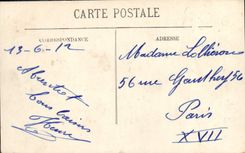 CARTE POSTALE
CORRESPONDANCE
ADRESSE
13-6-12
Bons baisers
Madame
56 rue Gauthey 56
Paris
XVII